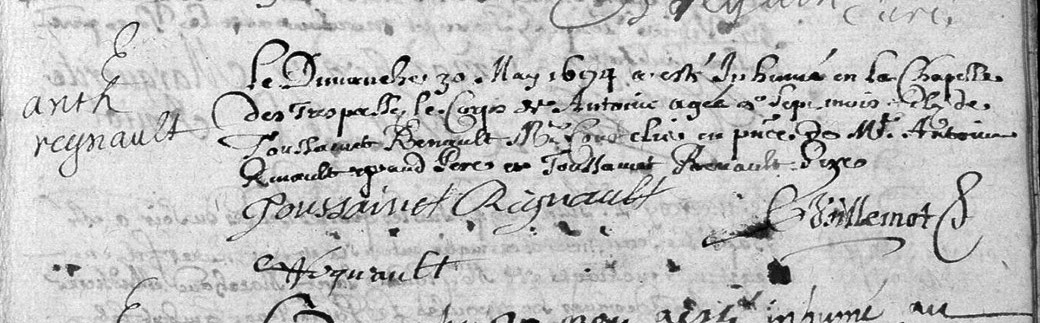 Curé
E
anth
reynault
le Dimanche 30 May 1694 a esté Inhumé en la Chapelle
des Trepassez le Corps de Antoine agée de sept mois fils de
Toussainct Renault Mr en pnce de Mr Antoine
Renault grand Pere et Toussainct Renault Pere
Toussainct Reignault
Vuillemot
Reignault
inhumé au